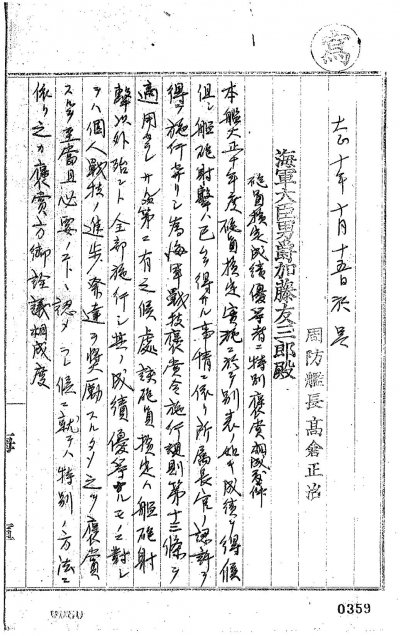 寫
大正十年十月十五日 於呉
周防艦長 髙倉正治
海軍大臣男爵加藤友三郎殿
砲員検定成績優等者ニ特別褒賞相成度件
本艦大正十年度砲員検定実施ニ於テ別表ノ如キ成績ヲ得候
但シ艦砲射撃ハ已ムヲ得サル事情ニ依リ所属長官ノ認許ヲ
得テ施行 海軍戦技褒賞令施行細則第十三條ヲ
適用 次第ニ有之候處該砲員検定ハ艦砲射
撃以外殆ント全部施行シ其ノ成績優等ナルモノニ對シ
テハ個人戦技ノ進歩発達ヲ奨励スルタメ之ヲ褒賞
スルヲ至當且必要ノコトト認メラレ候ニ就テハ特別ノ方法ニ
依リ之カ褒賞方御詮議相成度
海軍
0359